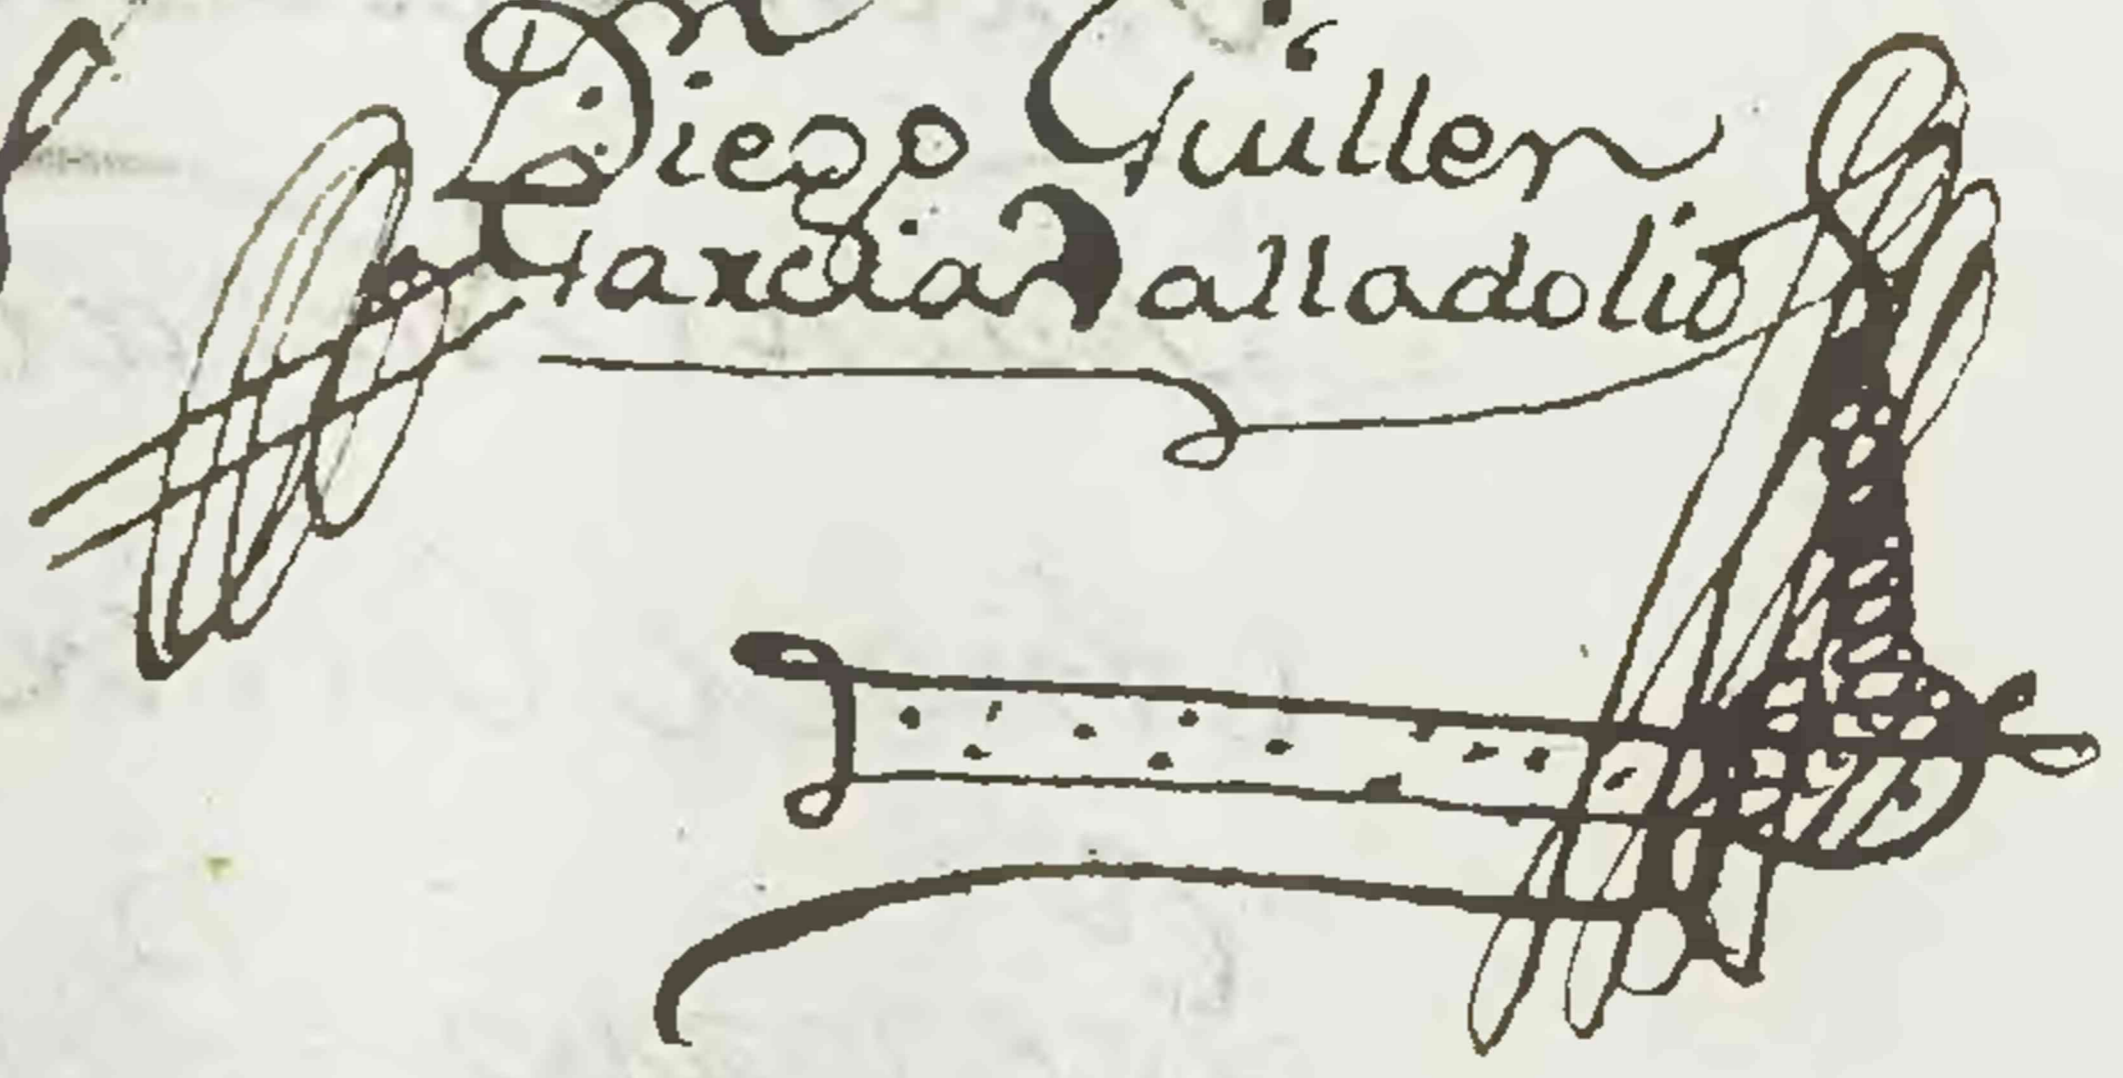 Diego Guillen
Garcia Valladolid